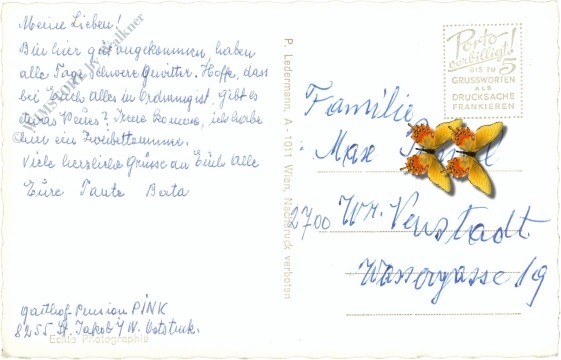 Meine Lieben!
Bin hier gut angekommen, haben
alle Tage schwere Gewitter. Hoffe, dass
bei Euch alles in Ordnung ist. Gibt es
etwas Neues? komme, ich habe
hier ein Zweibettzimmer.
Viele herzliche Grüsse an Euch alle
Eure Tante Berta
Gasthof-Pension PINK
8255 St. Jakob i/W. Oststmk.
Echte Photographie
P. Ledermann, A-1011 Wien, Nachdruck verboten
Porto
verbilligt!
BIS ZU 5
GRUSSWORTEN
ALS
DRUCKSACHE
FRANKIEREN
Familie
Max
2700 Wr. Neustadt.
Wassergasse 19